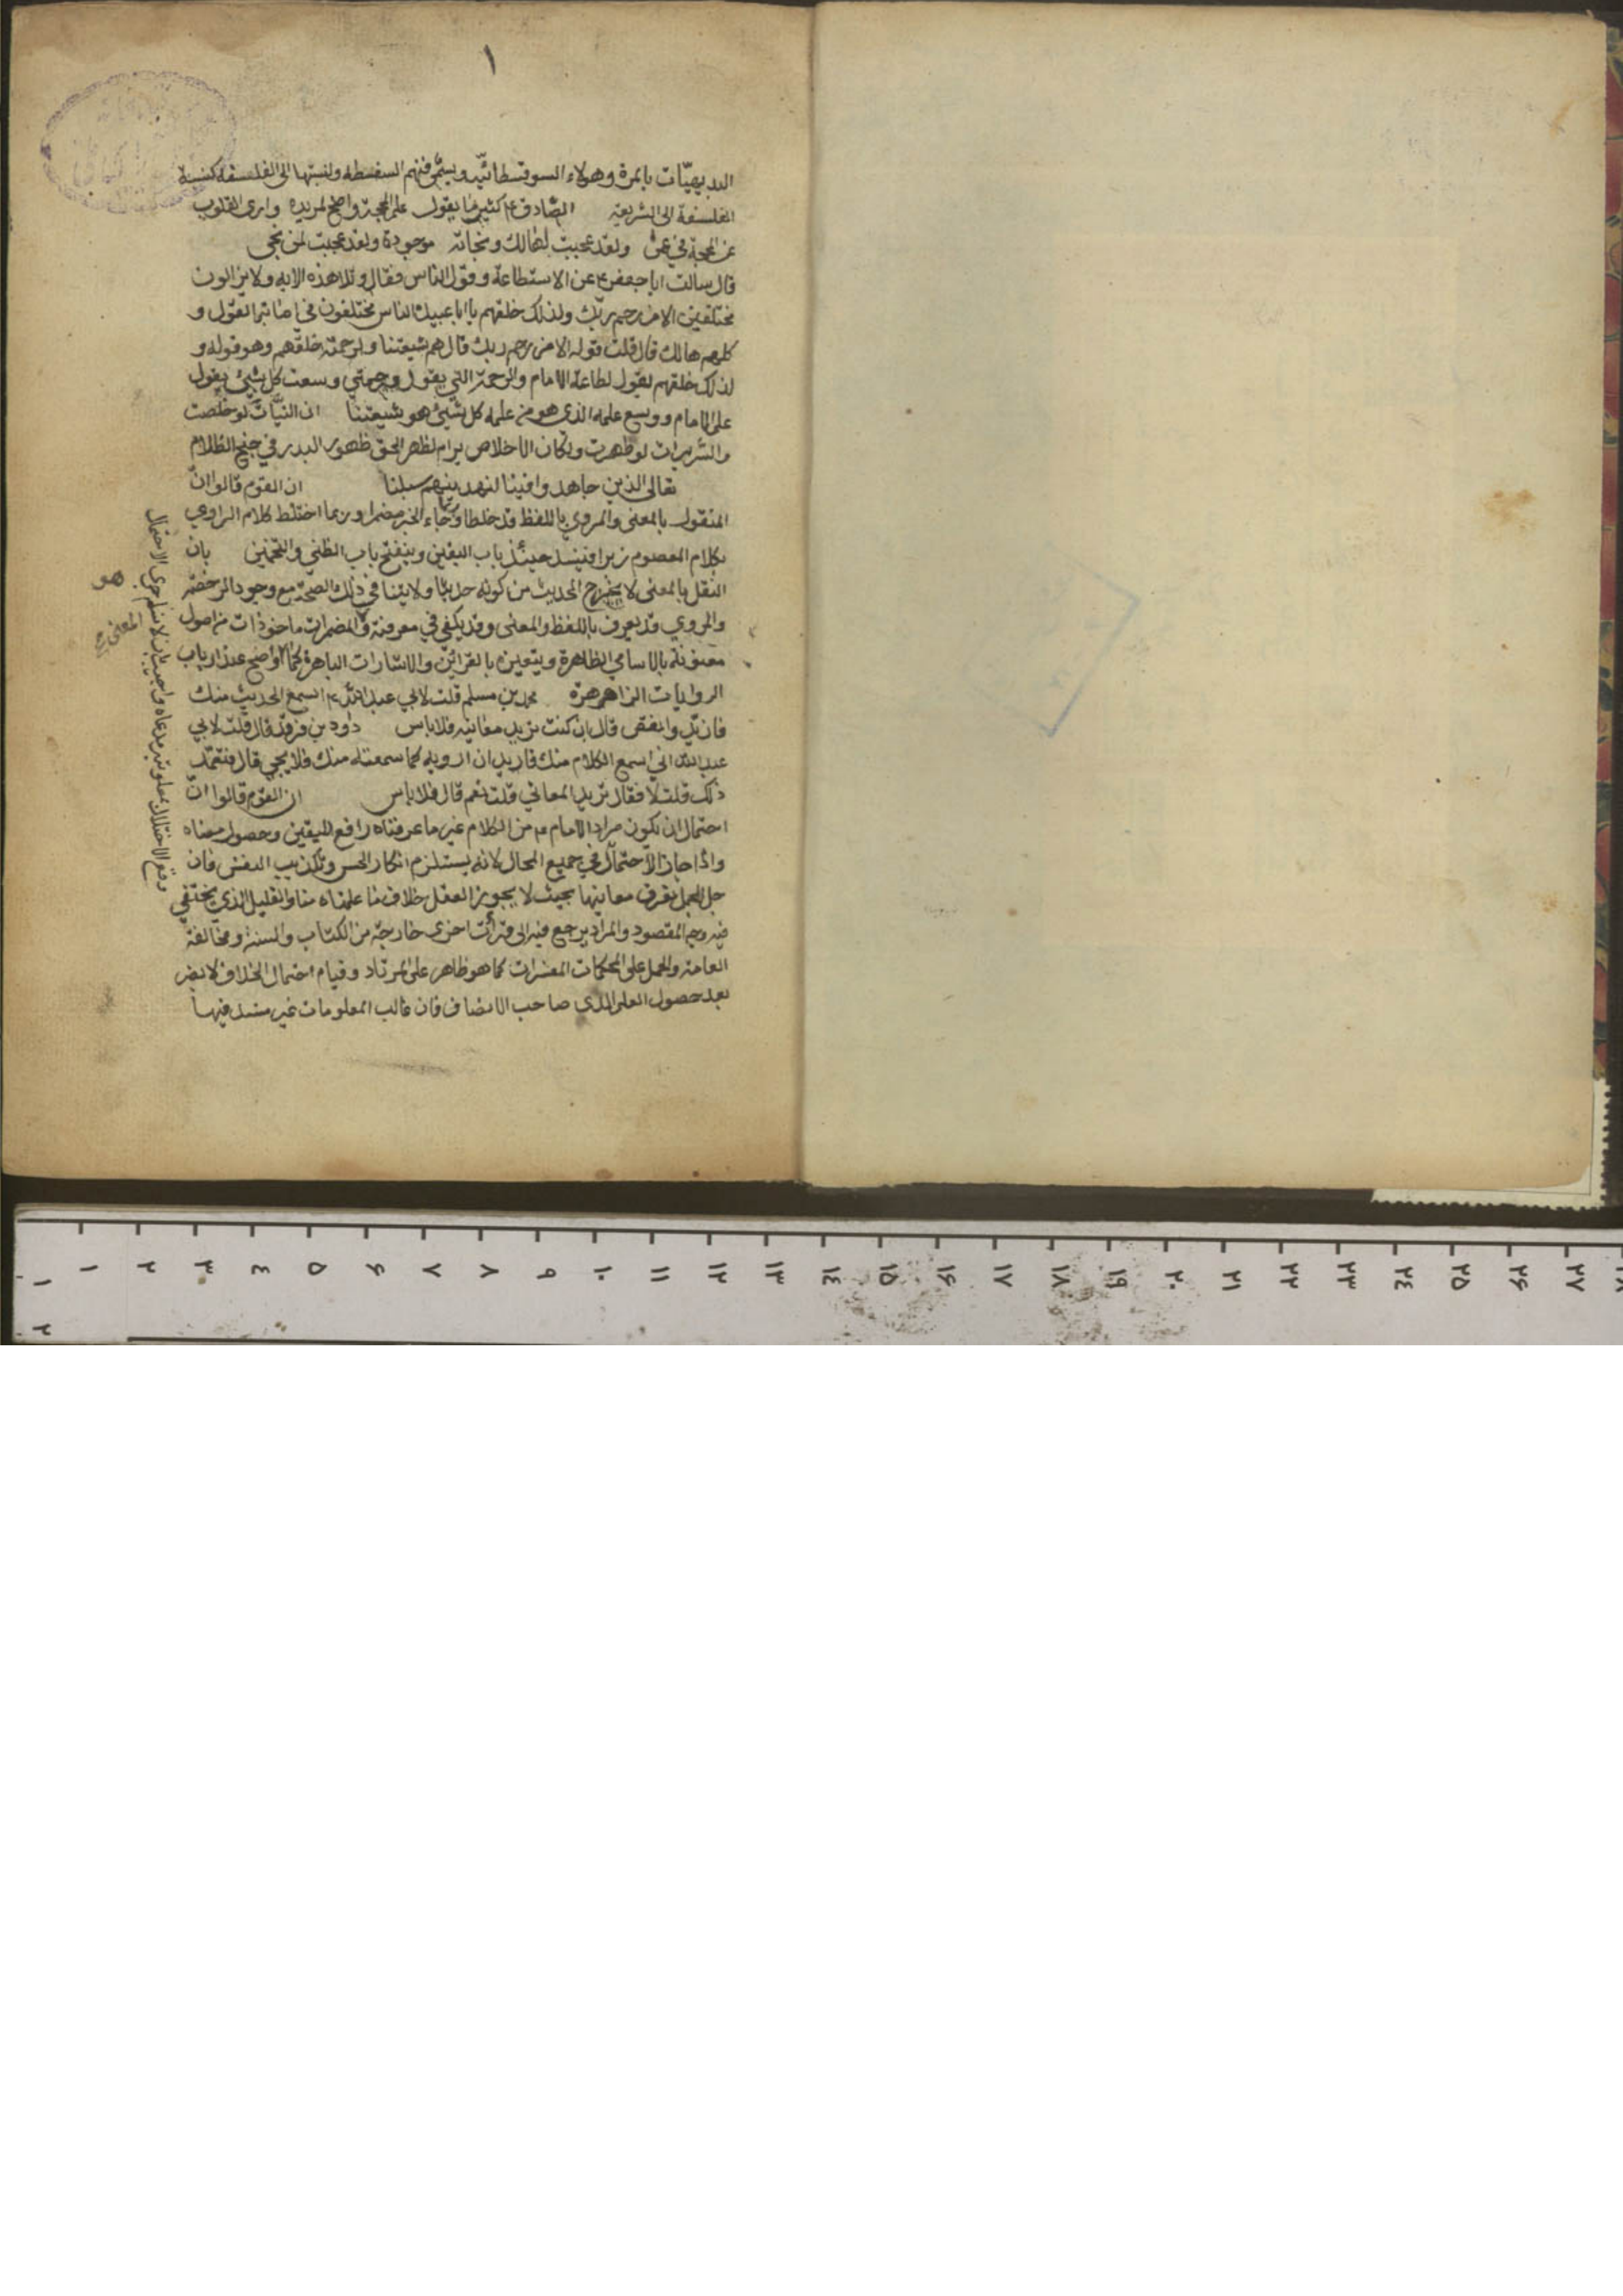 ١
البديهيّات بالمرة وهولاء السوفسطائيّه ويسمّى فنهم السفسطه ونسبتها الى الفلسفه كنسبة
الفلسفة الى الشريعة الصّادق ع كثيرما يقول علم المحجة واضح لمريده وارى القلوب
عن المحجة في عمى ولقد عجبت لهالك ونجاته موجودة ولقد عجبت لمن نجى
قال سالت ابا جعفر ع عن الاستطاعة وقول الناس فقال وتلا هذه الايه ولا يزالون
مختلفين الا من رحم ربك ولذلك خلقهم يا ابا عبيدة الناس مختلفون في اصابة القول و
كلهم هالك قال قلت قوله الا من رحم ربك قال هم شيعتنا ولرحمته خلقهم وهو قوله و
لذلك خلقهم يقول لطاعة الامام والرحمة التي يقول ورحمتي وسعت كل شيئ يقول
علم الامام ووسع علمه الذي هو من علمه كل شيئ هو شيعتنا ان النيّات لو خلصت
والسّريرات لو طهرت وكان الاخلاص يرام لظهر الحق ظهور البدر في جنح الظلام
تعالى الذين جاهدوا فينا لنهدينهم سبلنا ان القوم قالوا انّ
المنقول بالمعنى والمروي باللفظ قد خلطا وربما جاء الخبر مضمرا وربما اختلط كلام الراوي
بكلام المعصوم فينسد حينئذ باب اليقين وينفتح باب الظني والتخمين بان
النقل بالمعنى لا يخرج الحديث من كونه حديثا ولا ينافي ذلك الصحّة مع وجود الرخصة
والمروي قد يعرف باللفظ والمعنى وقد يكفي في معرفته والمضمرات ماخوذات من اصول
معنونة بالاسامي الظاهرة ويتعين بالقرائن والاشارات الباهرة كما واضح عند ارباب
الروايات الزاهرة محمد بن مسلم قلت لابي عبد الله ع اسمع الحديث منك
فازيد وانقص قال ان كنت تريد معانيه فلا باس داود بن فرقد قال قلت لابي
عبد الله اني اسمع الكلام منك فاريد ان ارويه كما سمعته منك فلا يجي قال فتتعمّد
ذلك قلت لا فقال تريد المعاني قلت نعم قال فلا باس ان القوم قالوا انّ
احتمال ان يكون مراد الامام ع من الكلام غير ما عرفناه رافع لليقين وحصول معناه
واذا جاز الاحتمال في جميع المحال لانه يستلزم انكار الحس وتكذيب النفس فان
جل الجمل نعرف معانيها بحيث لا يجوز العقل خلاف ما علمناه منا والقليل الذي يختفي
فيه وجه المقصود والمراد يرجع فيه الى قرآت اخرى خارجة من الكتاب والسنة ومخالفة
العامة والحمل على المحكمات المفسّرات كما هو ظاهر على المرتاد وقيام احتمال الخلاف لا يضر
بعد حصول العلم لذي صاحب الانصاف فان غالب المعلومات غير منسد فيها
هو
المعنى
١ ٢ ٣ ٤ ٥ ۶ ٧ ٨ ٩ ١٠ ١١ ١٢ ١٣ ١٤ ١٥ ١۶ ١٧ ١٨ ١٩ ٢٠ ٢١ ٢٢ ٢٣ ٢٤ ٢٥ ٢۶ ٢٧
١
٢